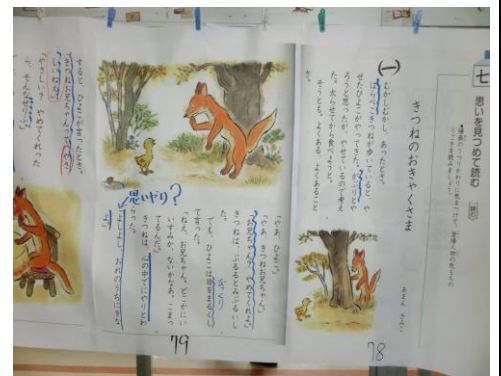 七
思いを見つめて読む
読む
場面のうつりかわりに気をつけて、登場人物の気もちの
うごきを読みましょう。
きつねのおきゃくさま
あまん きみこ
(一)
むかしむかし、あったとさ。
はらぺこきつねが歩いていると、や
せたひよこがやってきた。がぶりとや
ろうと思ったが、やせているので考え
た。太らせてから食べようと。
そうとも。よくある、よくあること
さ。
78
「やあ、ひよこ。」
「やあ、きつねお兄ちゃん。」
「お兄ちゃん?やめてくれよ。」
きつねは、ぶるるとみぶるいし
た。
びっくり
でも、ひよこは目をまるくし
て言った。
「ねえ、お兄ちゃん。どこかにい
いすみか、ないかなあ。こまっ
てるんだ。」
きつねは、心の中でにやりとわ
らった。
「よしよし、おれのうちにきな
よ。」
思いやり?
79
すると、ひよこが言ったとさ。
「きつねお兄ちゃんって、やさ
しいねえ。」
「やさしい?やめてくれった
ら、そんなせりふ。」